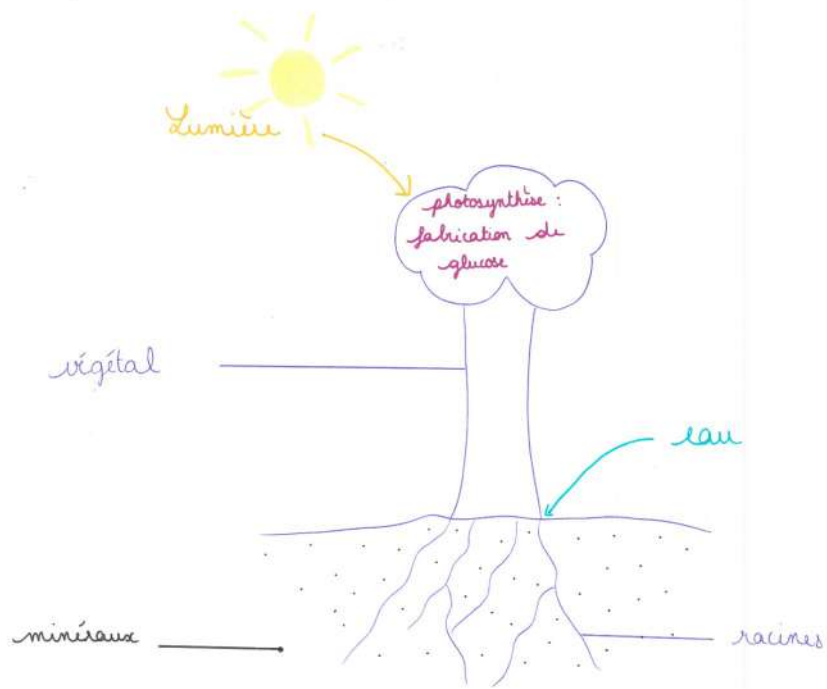 Lumière
photosynthèse :
fabrication de
glucose
végétal
eau
minéraux
racines